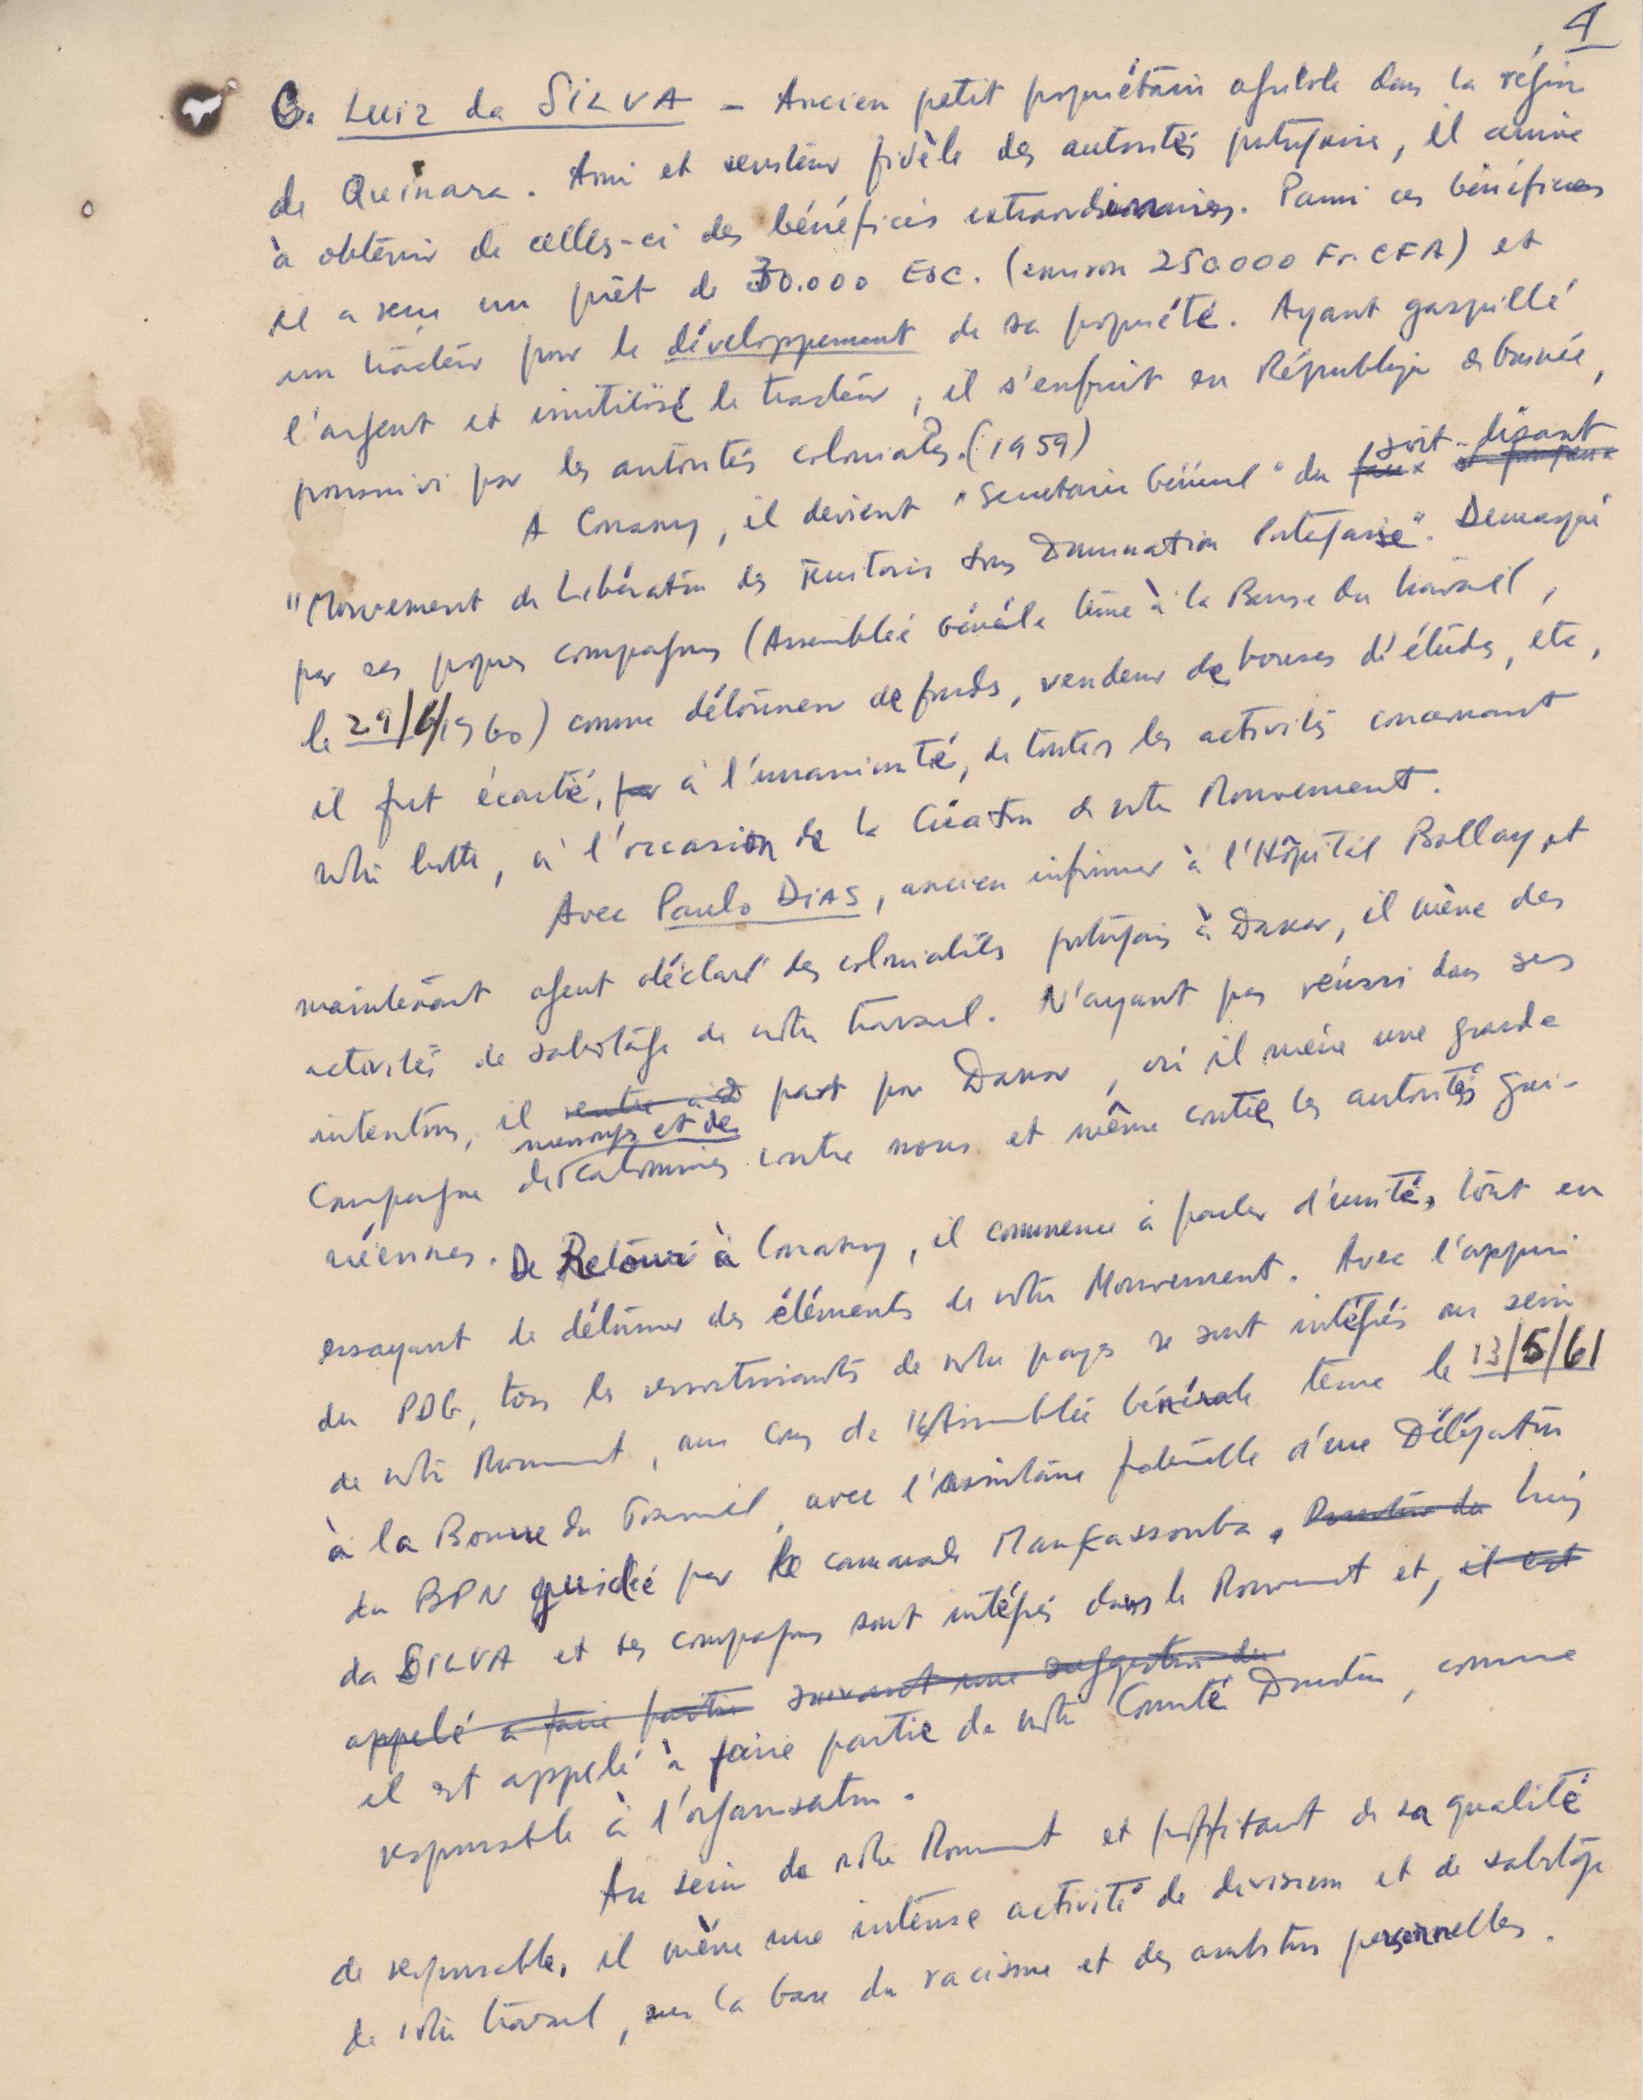 4
C. Luiz da SILVA - Ancien petit propriétaire agricole dans la région
de Quinara. Ami et serviteur fidèle des autorités portugaises, il arrive
à obtenir de celles-ci des bénéfices extraordinaires. Parmi ces bénéfices
il a reçu un prêt de 30.000 Esc. (environ 250000 Fr. CFA) et
un tracteur pour le développement de sa propriété. Ayant gaspillé
l'argent et inutilisé le tracteur, il s'enfuit en République de Guinée,
poursuivi par les autorités coloniales. (1959)
A Conakry, il devient "Secretaire Général" du faux soit-disant
"Mouvement de Libération des Territoires sous Domination Portugaise". Demasqué
par ses propres compagnons (Assemblée Générale tenue à la Bourse du travail,
le 29/6/1960) comme détourneur de fonds, vendeur de bourses d'études, etc,
il fut écarté, par à l'unanimité, de toutes les activités concernant
notre lutte, à l'occasion de la Création de notre Mouvement.
Avec Paulo DIAS, ancien infirmier à l'Hôpital Ballay et
maintenant agent déclaré des colonialistes portugais à Dakar, il mène des
activités de sabotage de notre travail. N'ayant pas réussi dans ses
intentions, il rentre part pour Dakar, où il mène une grande
mensonges et de
Campagne de calomnies contre nous et même contre les autorités gui-
néennes. De Retour à Conakry, il commence à parler d'unité, tout en
essayant de détourner des éléments de notre Mouvement. Avec l'appui
du PDG, tous les ressortissants de notre pays se sont intégrés au sein
de notre Mouvement, au cours de l'Assemblée Générale tenue le 13/5/61
à la Bourse du Travail, avec l'assistance fraternelle d'une Délégation
du BPN guidée par le camarade Mankassouba. Luiz
da SILVA et ses compagnons sont intégrés dans le Mouvement et, il est
appelé à faire partie suivant une suggestion du
il est appelé à faire partie de notre Comité Directeur, comme
responsable à l'organisation.
Au sein de notre Mouvement et profitant de sa qualité
de responsable, il mène une intense activité de division et de sabotage
de notre travail, sur la base du racisme et des ambitions personnelles.